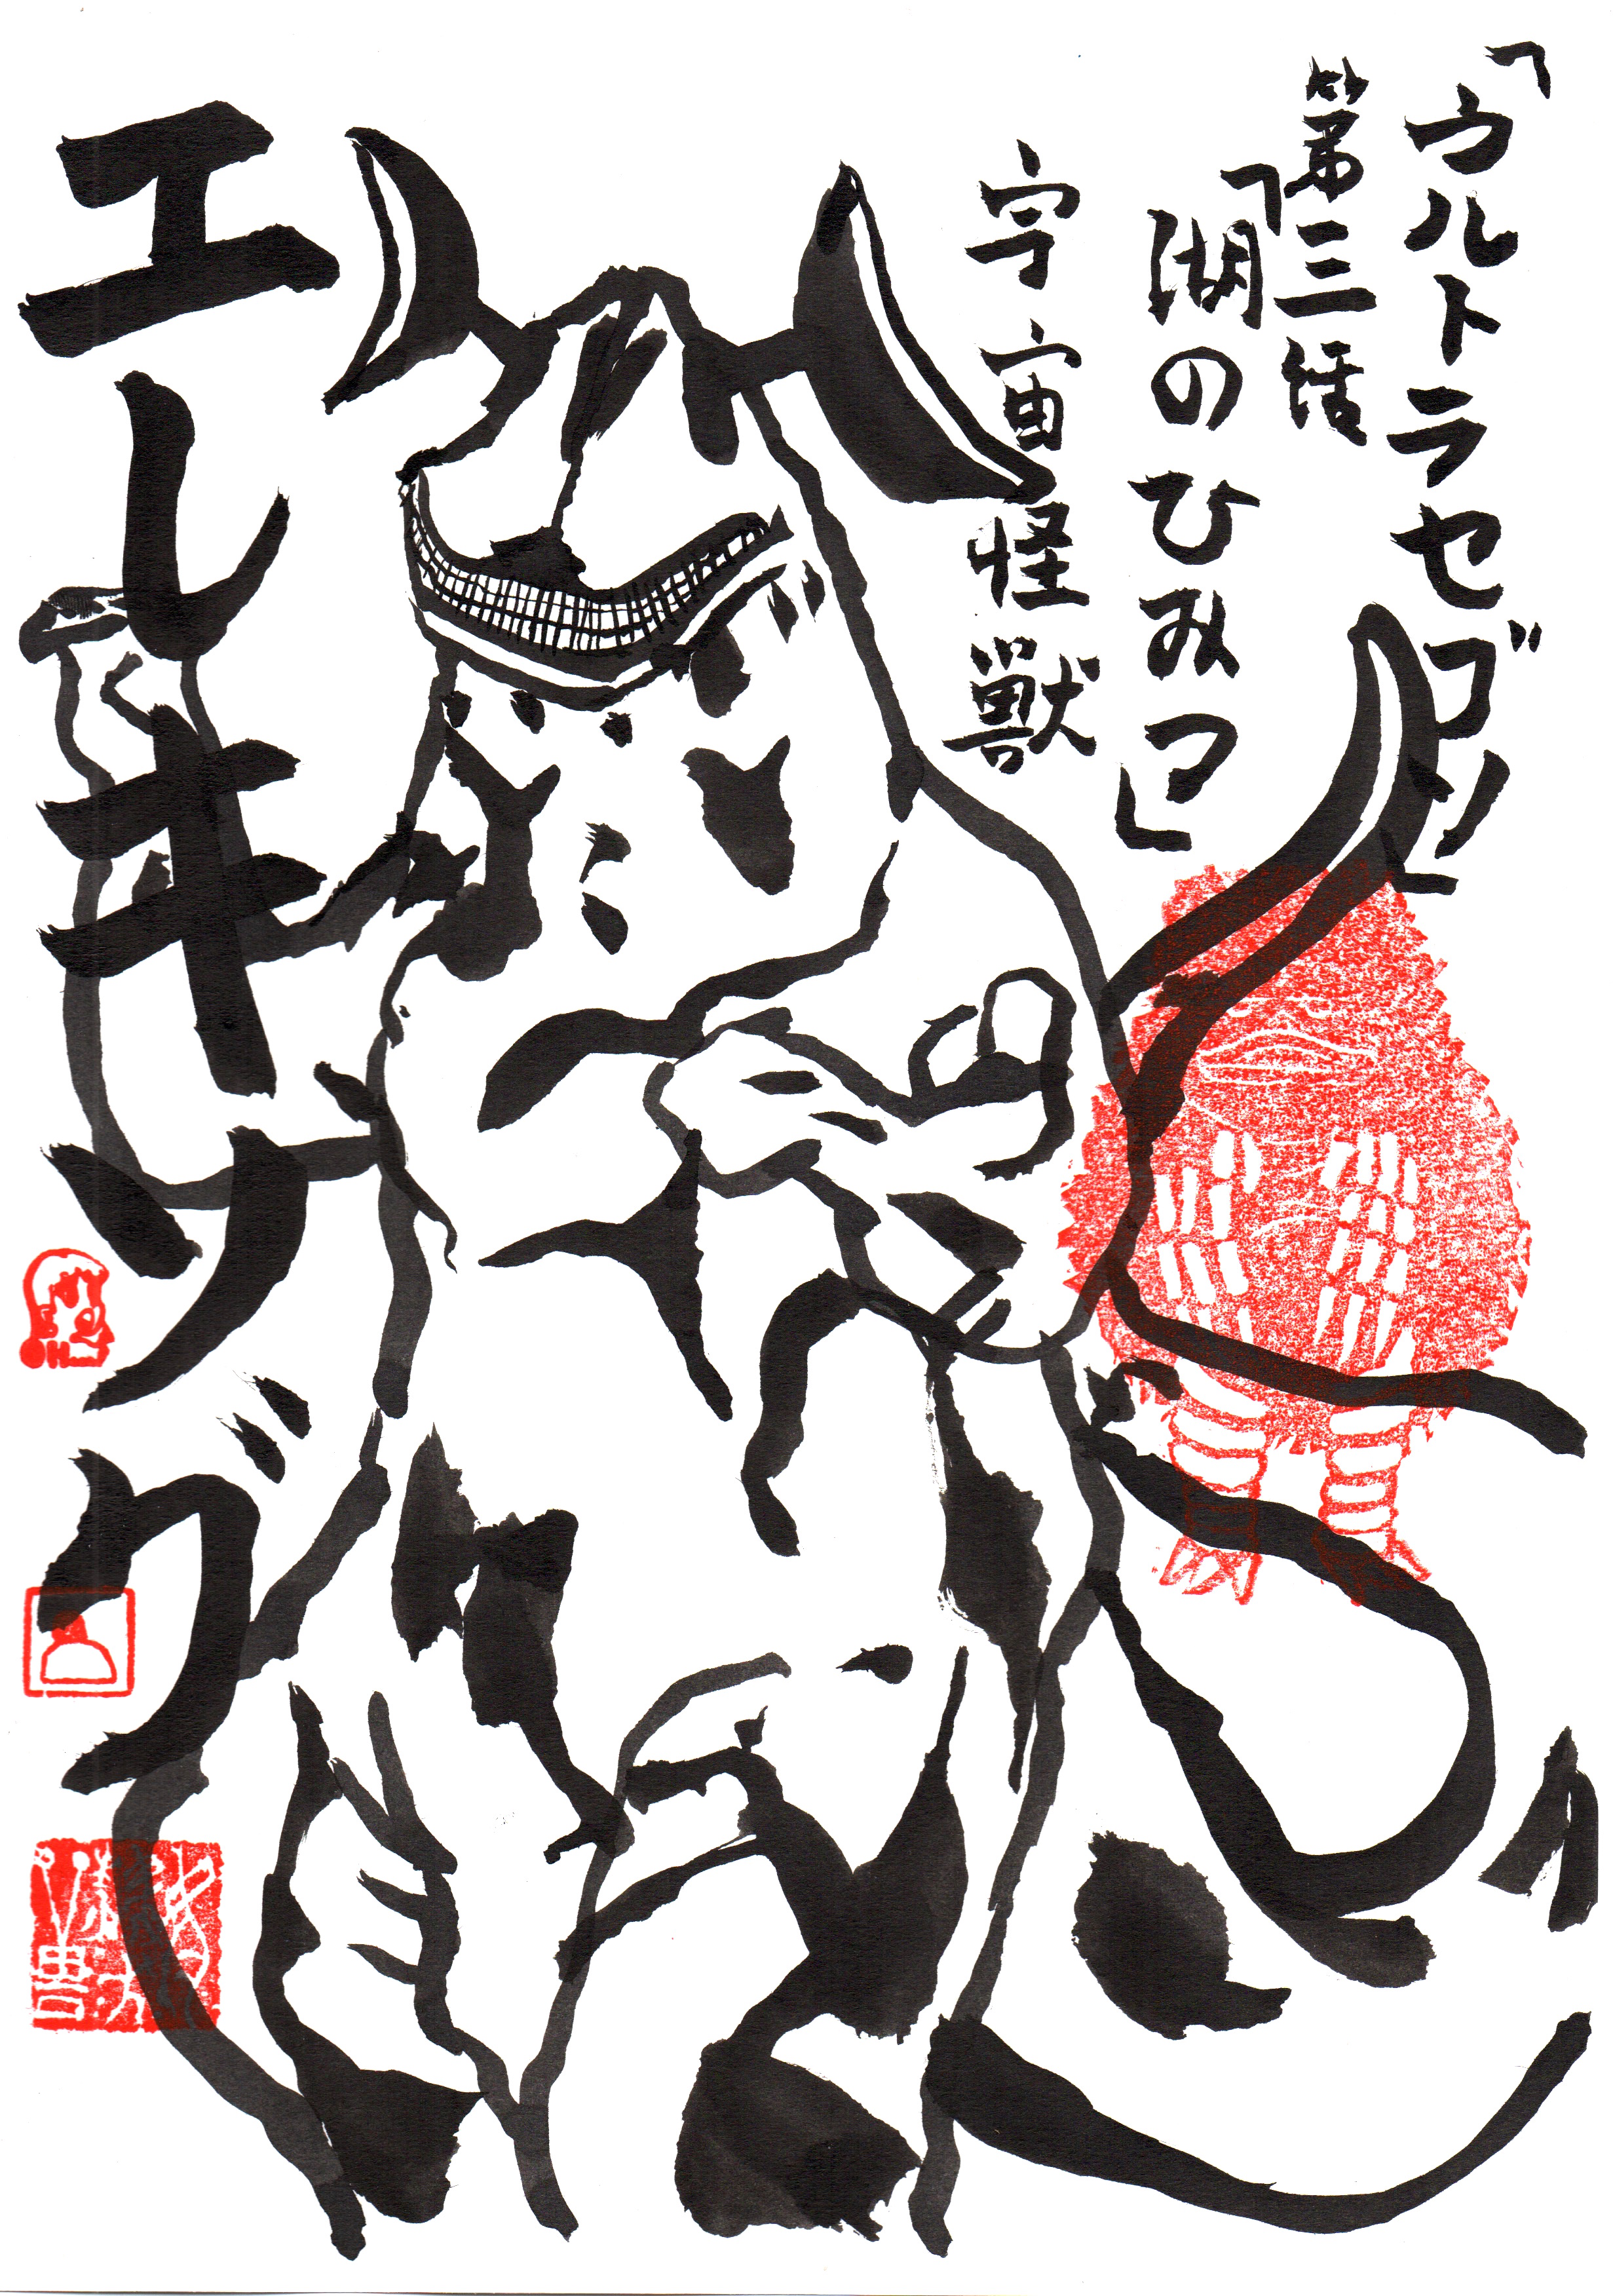 「ウルトラセブン」
第三話
「湖のひみつ」
宇宙怪獣
エレキング